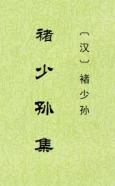 褚少孙集
〔汉〕褚少孙